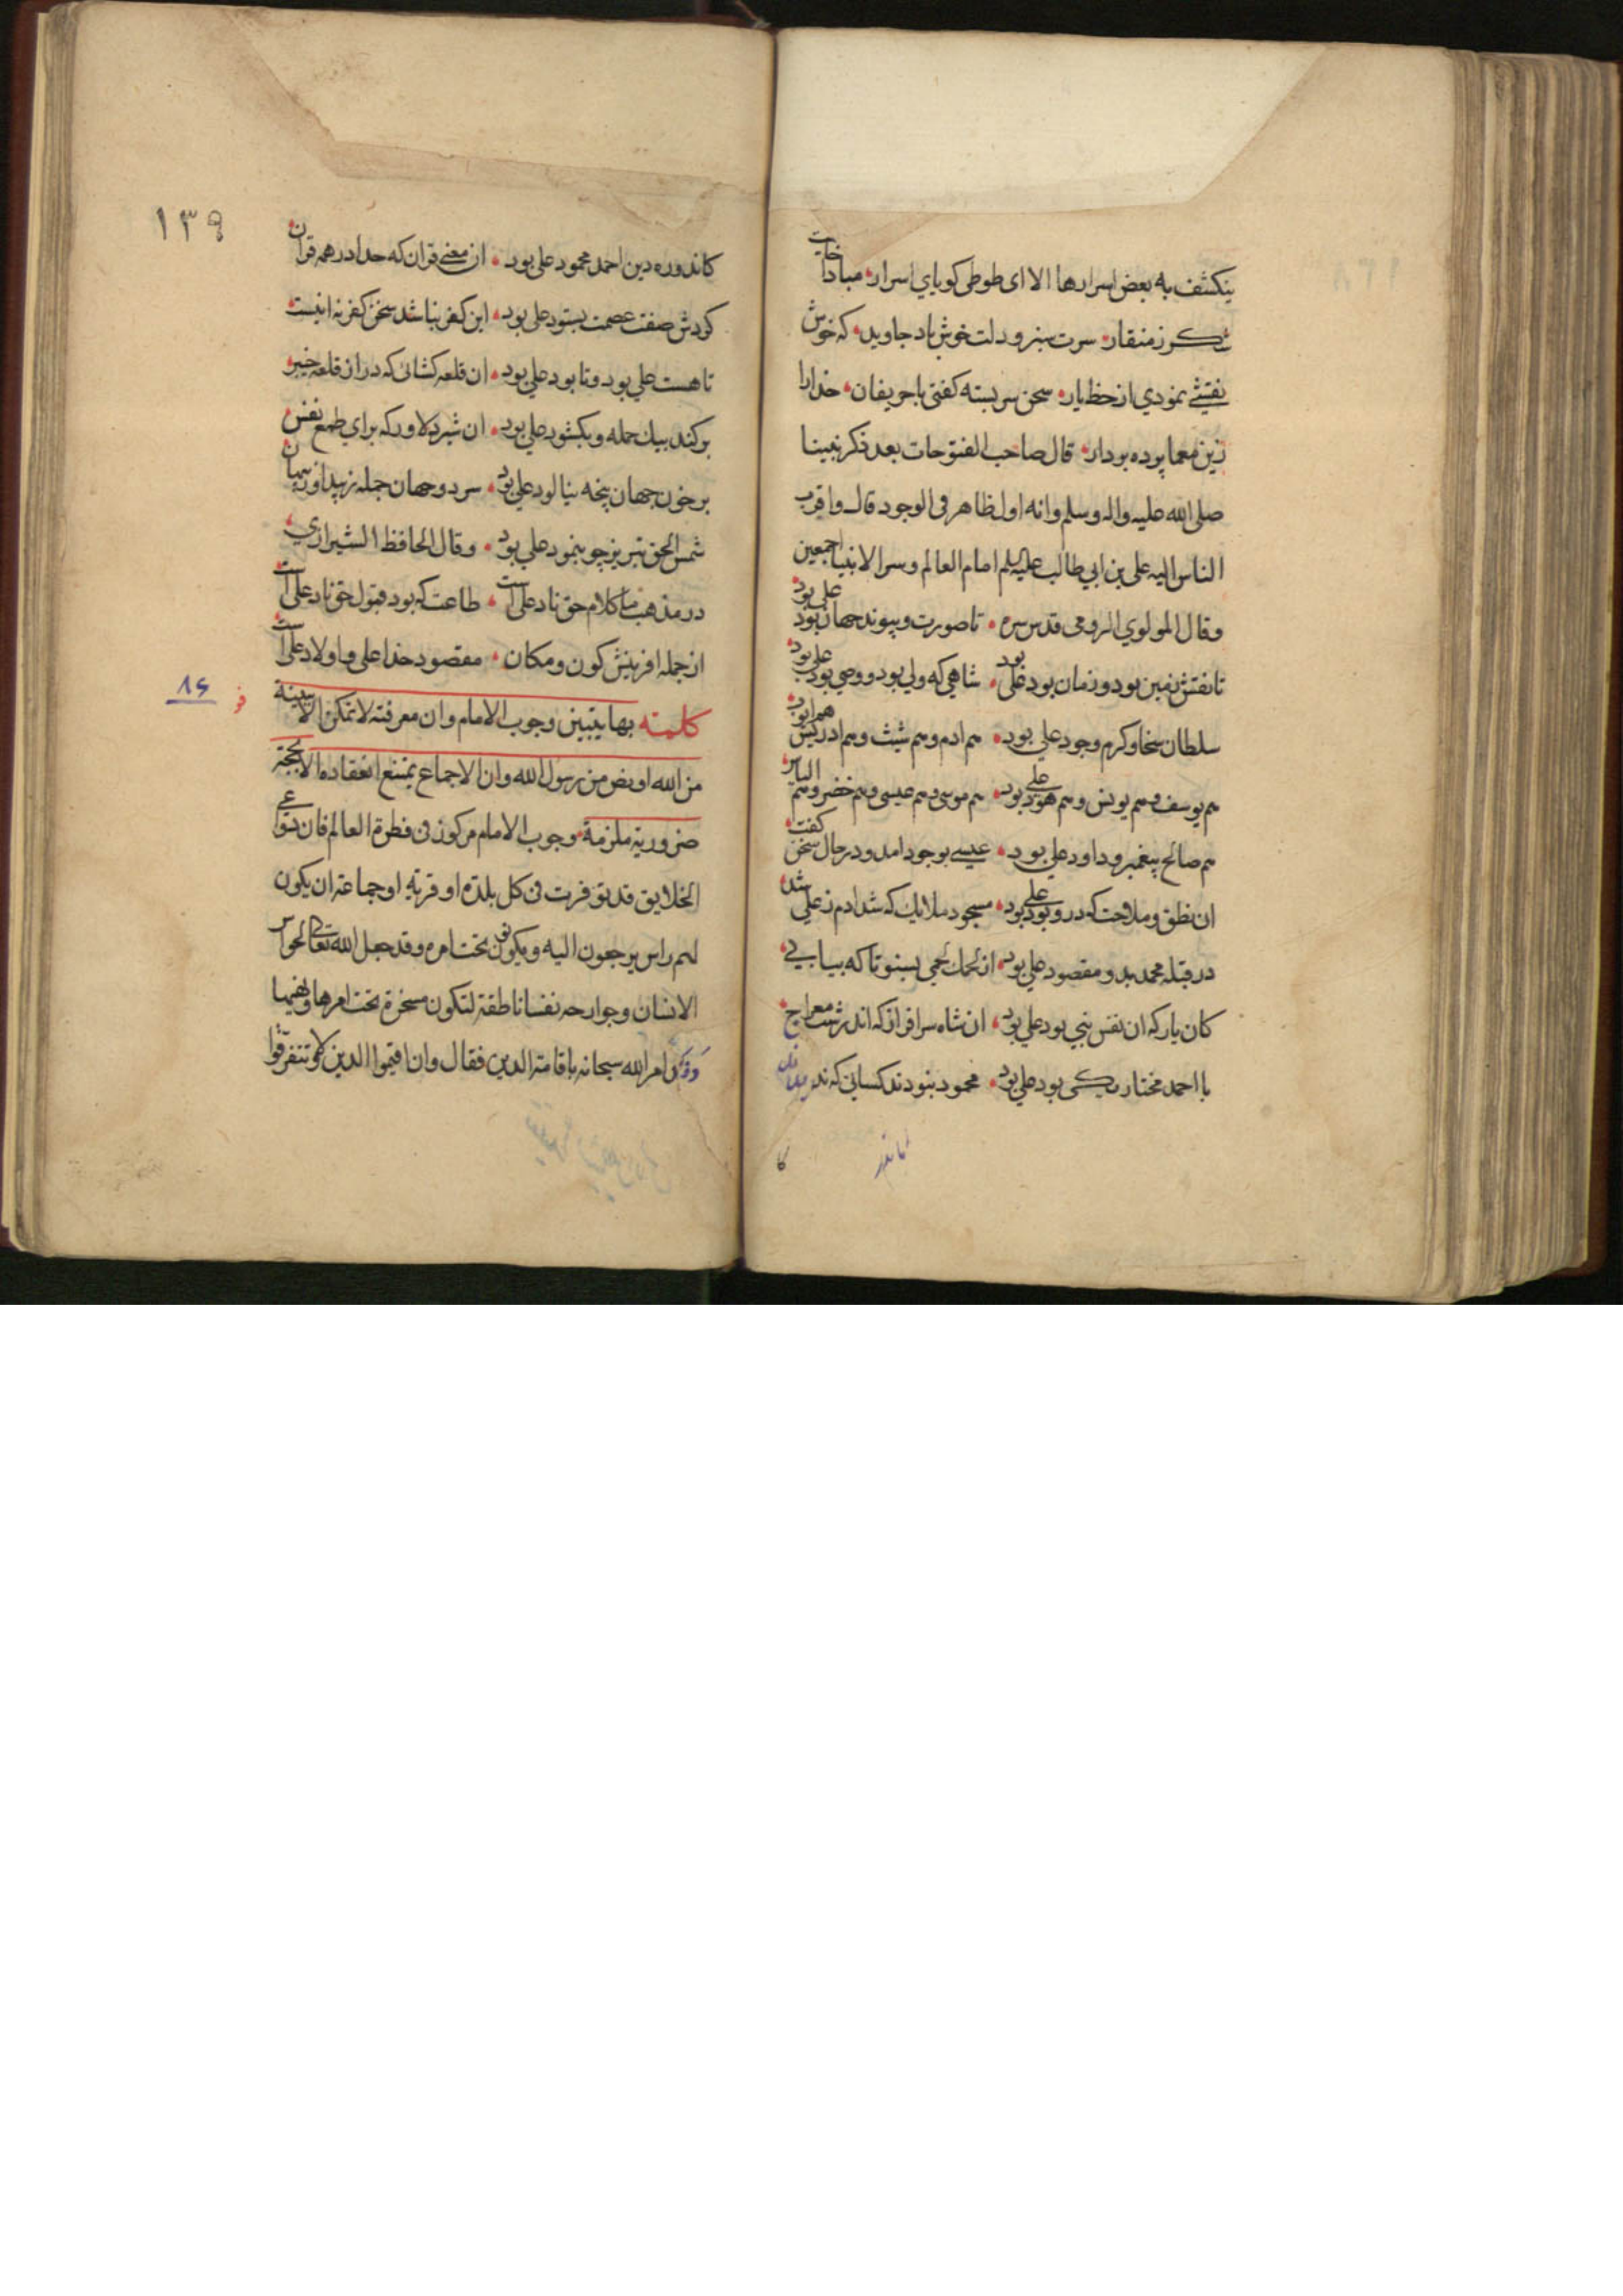 ينكشف به بعض اسرارها الا اى طوطى كوياي اسرار مبادا خاليت
شكر ز منقار سرت سبز و دلت خوش باد جاويد كه خوش
نقشى نمودي از خط يار سخن سربسته كفتى با حريفان خدا را
زين معما پرده بردار قال صاحب الفتوحات بعد ذكر نبينا
صلى الله عليه واله وسلم وانه اول ظاهر فى الوجود قال واقرب
الناس اليه على بن ابي طالب عليه السلم امام العالم وسر الانبيا اجمعين
وقال المولوي الرومى قدس سره تا صورت و پيوند جهان بود على بود
تا نقش زمين بود و زمان بود على بود شاهي كه ولي بود و وصي بود على بود
سلطان سخا و كرم و جود علي بود هم ادم و هم شيث و هم ادريس هم ايوب
هم يوسف و هم يونس و هم هود على بود هم موسى و هم عيسى و هم خضر و هم الياس
هم صالح پيغمبر و داود علي بود عيسى بوجود امد و در حال سخن كفت
ان نطق و ملاحت كه درو بود على بود مسجود ملايك كه شد ادم ز على شد
در قبله محمد بد و مقصود علي بود از لحمك لحمي بشنو تا كه بيابي
كان يار كه ان نفس نبي بود علي بود ان شاه سرافراز كه اندر شب معراج
با احمد مختار يكى بود علي بود محمود نبودند كسانى كه نديدند
كا
١٣٩
كاندر ره دين احمد محمود على بود ان معنى قران كه خدا در همه قران
كردش صفت عصمت بستود على بود اين كفر نباشد سخن كفر نه اينست
تا هست علي بود و تا بود علي بود ان قلعه كشائى كه در از قلعه خيبر
بر كند بيك حمله و بكشود علي بود ان شير دلاور كه براي طمع نفس
بر خون جهان پنجه نيالود علي بود سر دو جهان جمله ز پيدا و ز پنهان
شمس الحق تبريز چو بنمود علي بود وقال الحافظ الشيرازي
در مذهب ما كلام حق ناد على است طاعت كه بود قبول حق ناد على است
از جمله افرينش كون و مكان مقصود خدا على و اولاد على است
كلمة بها يتبين وجوب الامام وان معرفته لا تمكن الا ببينة
٨٤
من الله او نص من رسول الله وان الاجماع يمتنع انعقاده الا بحجة
ضرورية ملزمة وجوب الامام مركوز فى فطرة العالم فان دواعى
الخلايق قد توفرت فى كل بلدة او قرية او جماعة ان يكون
لهم راس يرجعون اليه ويكونون تحت امره وقد جعل الله تعالى لحواس
الانسان وجوارحه نفسا ناطقة لتكون مسخرة تحت امرها ونهيها
وقد امر الله سبحانه باقامة الدين فقال وان اقيموا الدين ولا تتفرقوا